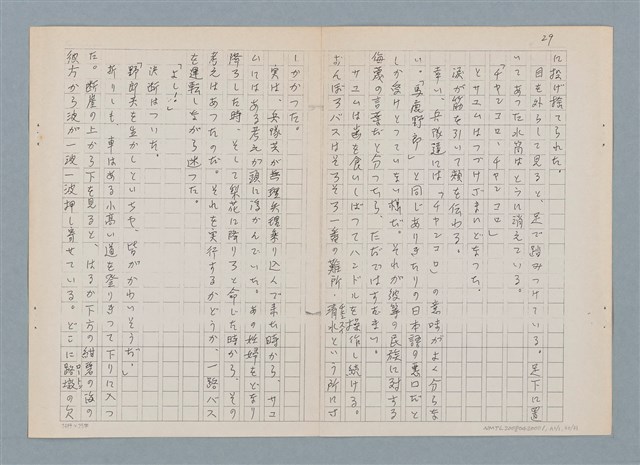 29
に投げ捨てられた。
目を外らして見ると、足で踏みつけている。足下に置
いてあった水筒はとうに消えている。
「チャンコロ、チャンコロ」
とサユムはつづけざまにどなった。
涙が筋を引いて頬を伝わる。
幸い、兵隊達には「チャンコロ」の意味がよく分らな
い。「馬鹿野郎」と同じありきたりの日本語の悪口だと
しか受けとっていない様だ。それが彼等の民族に対する
侮蔑の言葉だと分ったら、ただではすむまい。
サユムは歯を食いしばってハンドルを操作し続ける。
おんぼろバスはそろそろ一番の難所・清水という所にさ
しかかった。
実は、兵隊共が無理矢理乗り込んで来た時から、サユ
ムにはある考えが頭に浮かんでいた。あの妊婦をどなり
降ろした時、そして梨花に降りろと命じた時から、その
考えはあったのだ。それを実行するかどうか、一路バス
を運転しながら迷った。
「よし!」
決断はついた。
「野郎共を生かしといちゃ、皆がかわいそうだ。」
折りしも、車はある小高い道を登りきって下りに入っ
た。断崖の上から下を見ると、はるか下方の紺碧の海の
彼方から波が一波一波押し寄せている。どこに路壊の欠